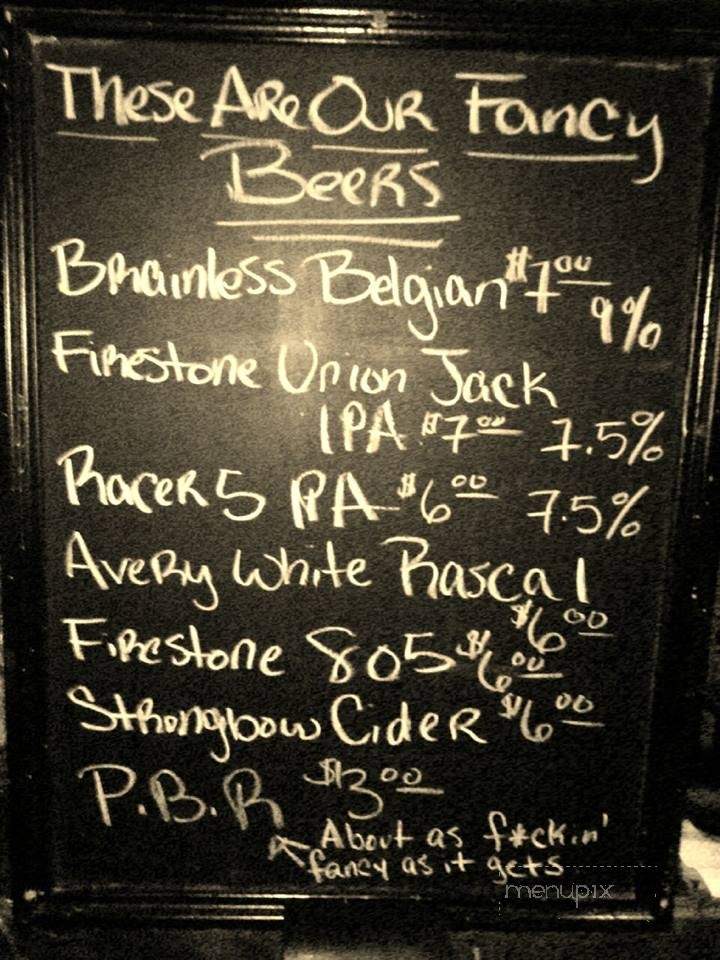 These Are Our Fancy
Beers
Brainless Belgian $7.00
9%
Firestone Union Jack
IPA $7.00 7.5%
Racer 5 IPA $6.00 7.5%
Avery White Rascal
$6.00
Firestone 805 $6.00
Strongbow Cider $6.00
P.B.R $3.00
About as f*ckin'
fancy as it gets
menupix